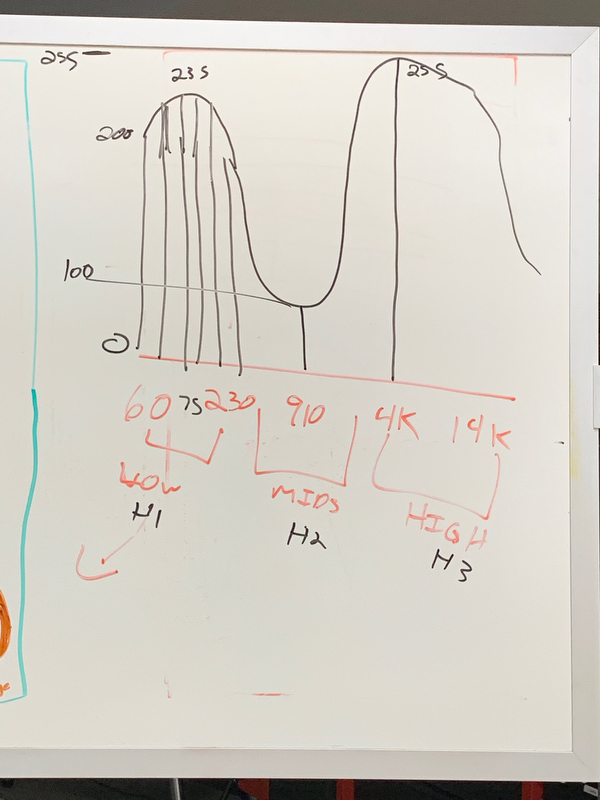 255
235
255
200
100
0
60 75 230 910 4K 14K
LOW MIDS HIGH
H1 H2 H3